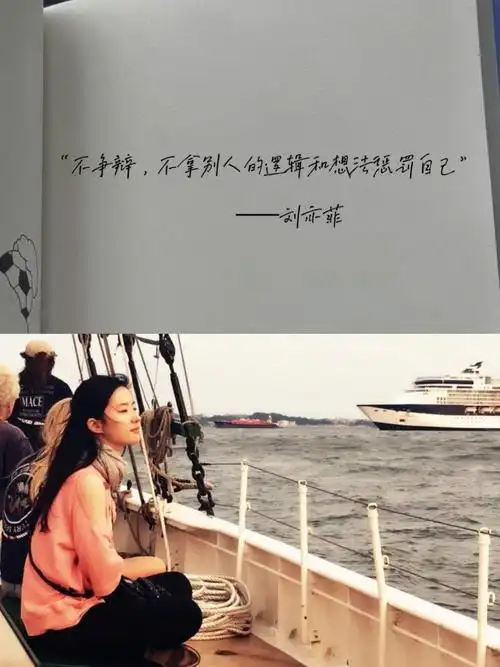 “不争辩，不拿别人的逻辑和想法惩罚自己”
——刘亦菲
MACE